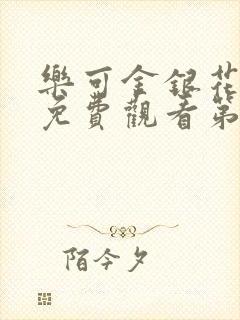 樂可金銀花
免費觀看第
陌今夕